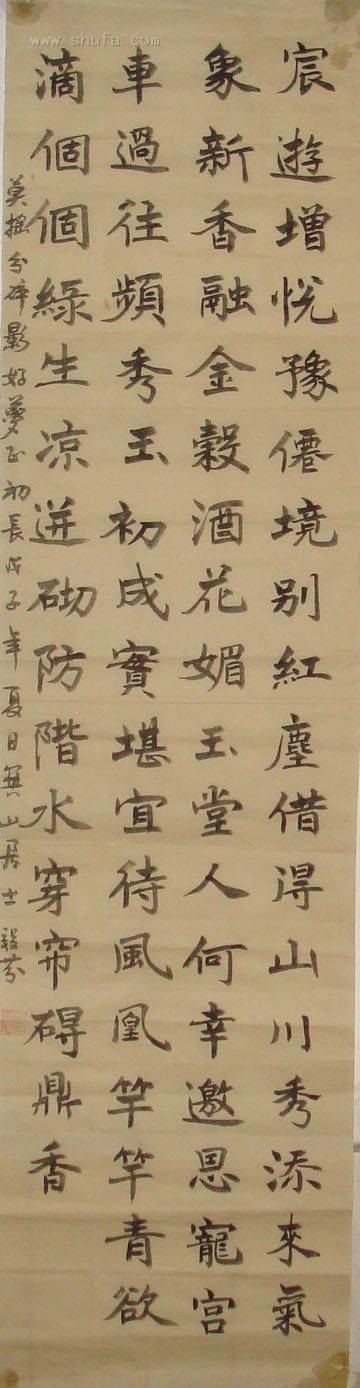 www.shufa.com
宸遊增悦豫僊境别紅塵借淂山川秀添來氣
象新香融金穀酒花媚玉堂人何幸邀恩寵宫
車過往頻秀玉初成實堪宜待風凰竿竿青欲
滴個個綠生凉迸砌防階水穿帘碍鼎香
莫摇分碎影好夢正初長戊子年夏日山居士